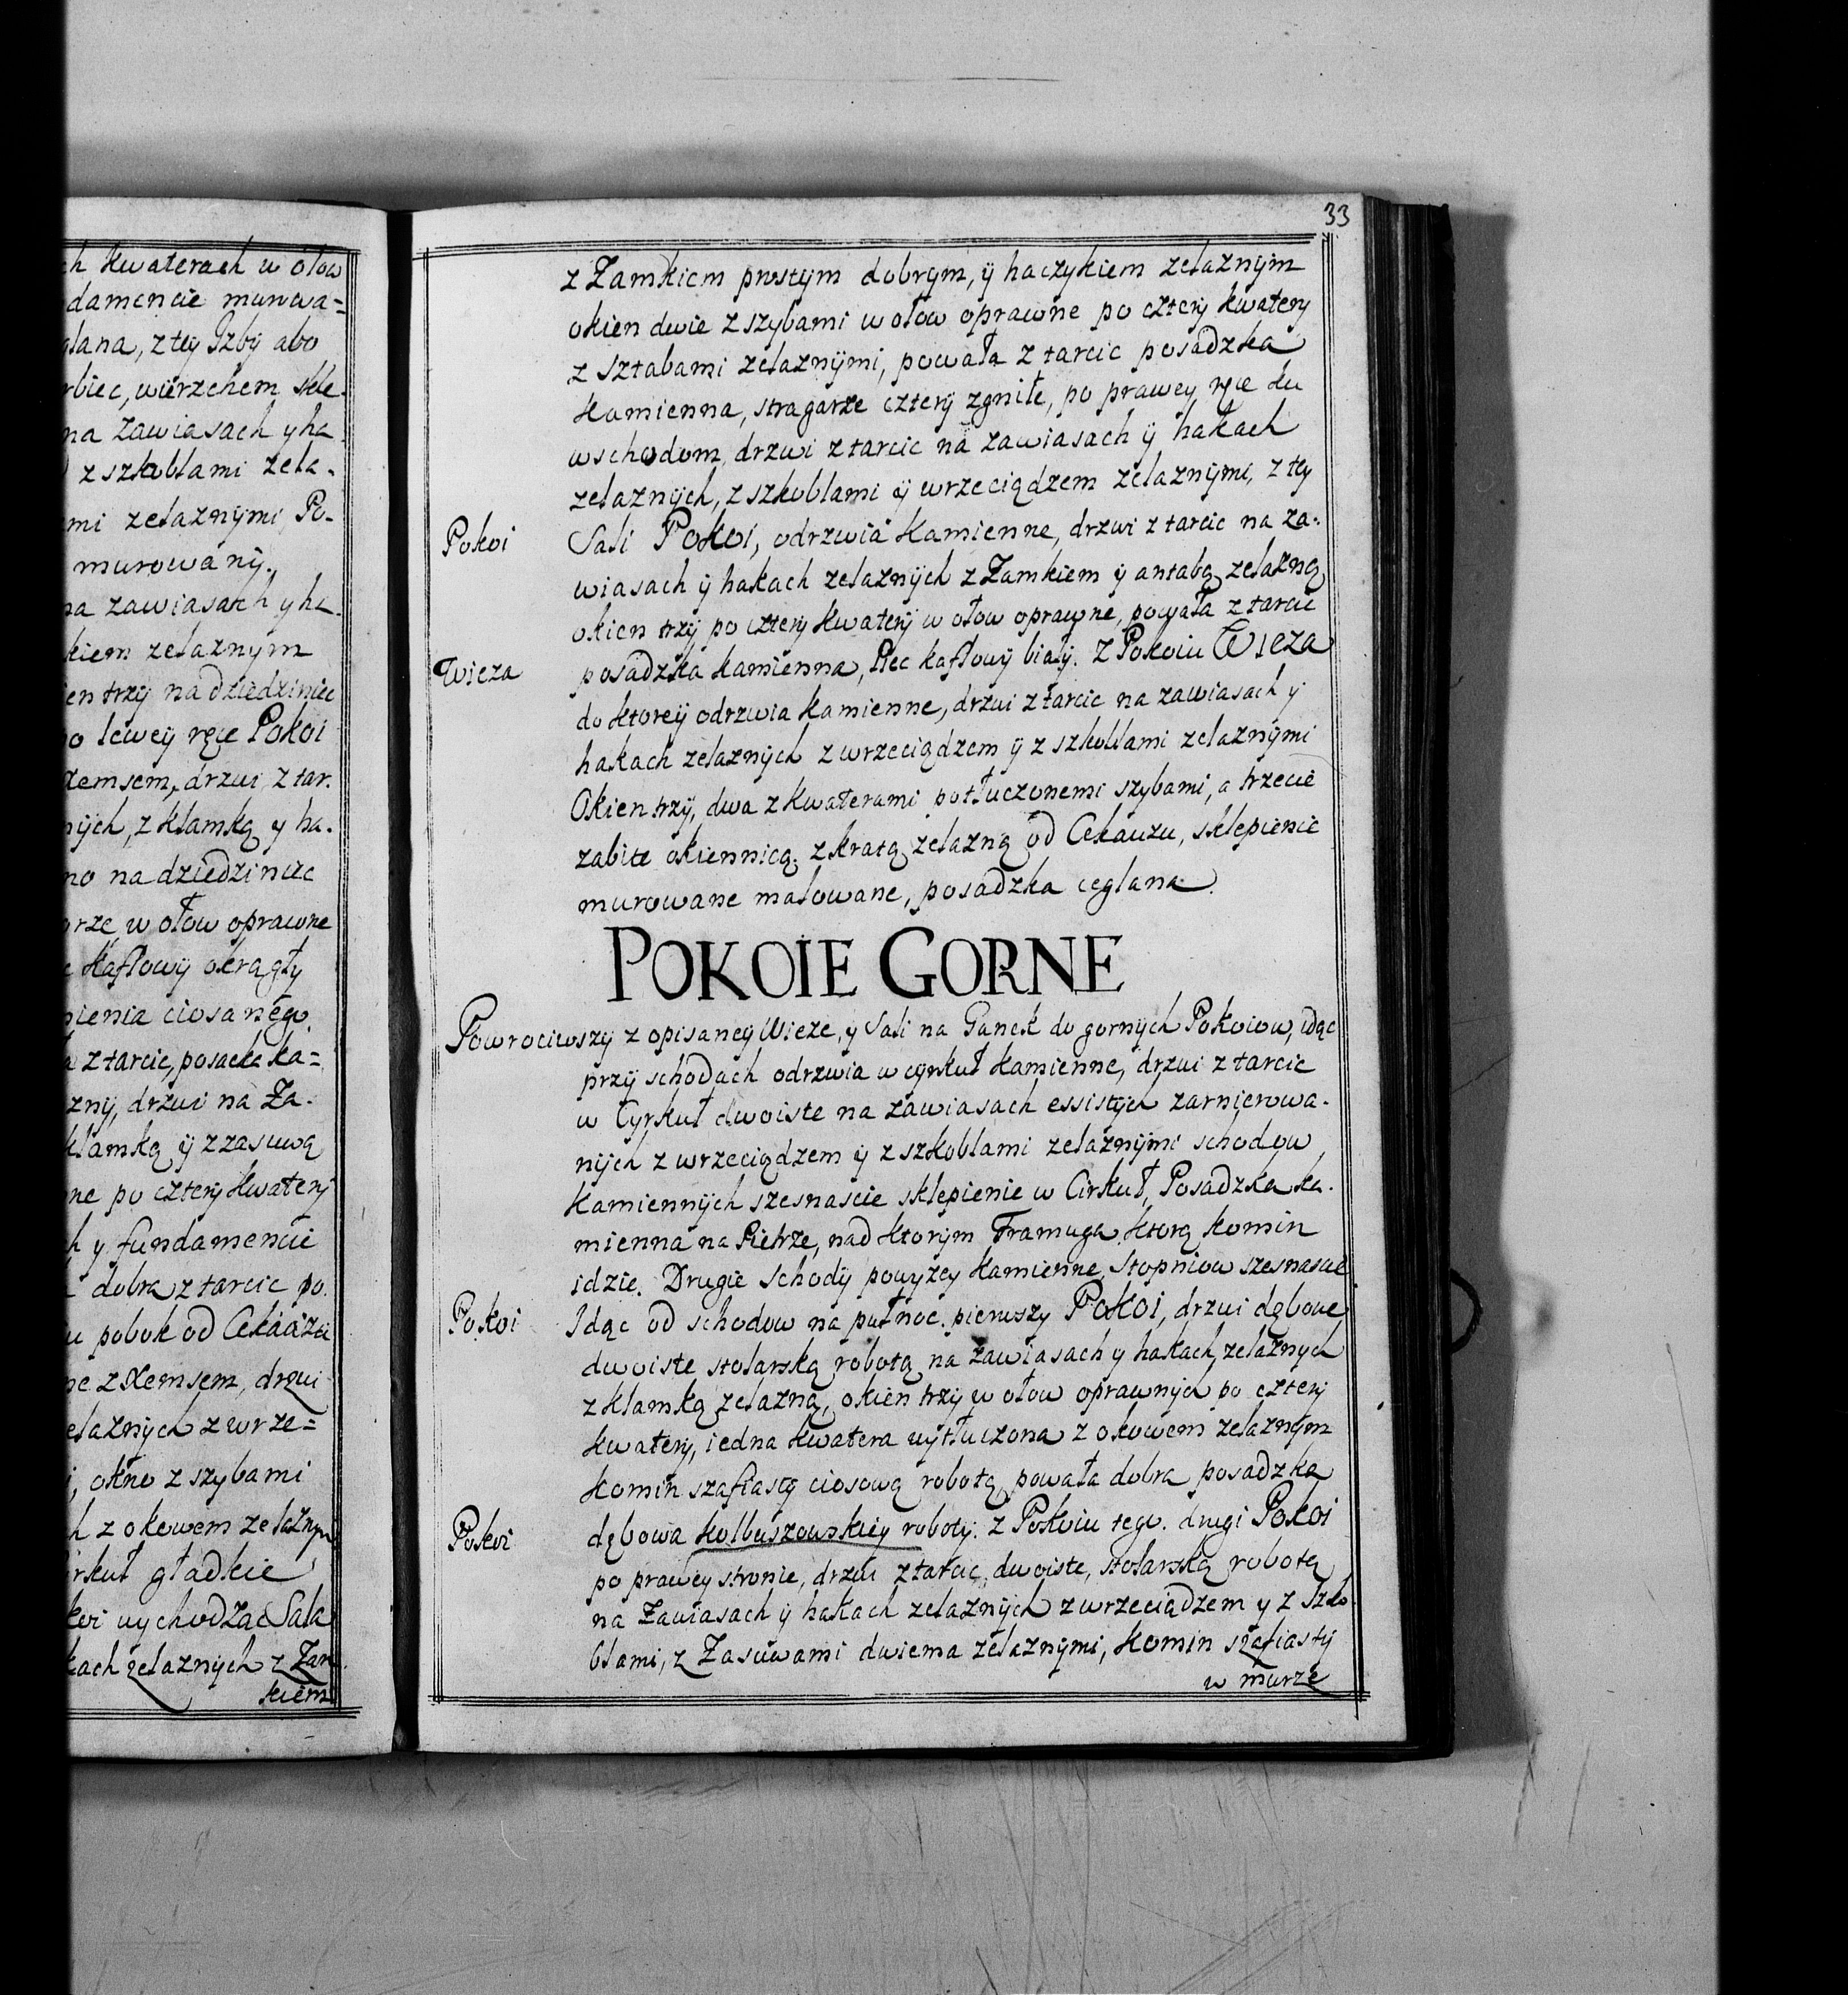 ch kwaterach w ołow
damencie murowa=
glana, z tey Izby abo
rbiec, wierzchem skle-
na zawiasach y ha-
z szkoblami zela-
mi zelaznymi, Po-
murowany.
na zawiasach y ha-
kiem zelaznym
ien trzy na dziedziniec
o lewey ręce Pokoi
xemsem, drzwi z tar.
nych, z klamką y ha.
no na dziedziniec
orze, w ołow oprawne
c kaflowy okrągły
ienia ciosanego.
a z tarcic, posadz ka=
zny, drzwi na Za-
klamką ÿ z zasuwą
ne po cztery kwatery
h y fundamencie
dobra z tarcic po.
u pobok od Cekauzu
ne z Xemsem, drzwi
elaznych z wrze=
i, okno z szybami
h z okowem zelaznym
irkuł gładkie
koi wychodząc Sala
kach zelaznych z Zam-
kiem
33
z Zamkiem prostym dobrym, ÿ haczykiem zelaznym
okien dwie z szybami w ołow oprawne po cztery kwatery
z sztabami zelaznymi, powała z tarcic posadzka
kamienna, stragarze cztery zgniłe, po prawey ręce ku
wschodom drzwi z tarcic na zawiasach ÿ hakach
zelaznych, z szkoblami ÿ wrzeciądzem zelaznymi, z tey
Pokoi Sali Pokoi, odrzwia kamienne, drzwi z tarcic na za-
wiasach ÿ hakach zelaznych z Zamkiem ÿ antabą zelazną
okien trzy po cztery kwatery w ołow oprawne, powała z tarcic
Wieza posadzka kamienna, Piec kaflowy biały. Z Pokoiu Wieza
do ktoreÿ odrzwia kamienne, drzwi z tarcic na zawiasach y
hakach zelaznych z wrzeciądzem ÿ z szkoblami zelaznymi
Okien trzy, dwa z kwaterami potłuczonemi szybami, a trzecie
zabite okiennicą, z kratą zelazną od Cekauzu, sklepienie
murowane malowane, posadzka ceglana.
POKOIE GORNE
Powrociwszy z opisaney Wieze, y Sali na Ganek do gornych Pokoiow, idąc
przy schodach odrzwia w cyrkuł kamienne, drzwi z tarcic
w Cyrkuł dwoiste na zawiasach essistych zarnierowa-
nych z wrzeciądzem ÿ z szkoblami zelaznymi schodow
kamiennych szesnascie sklepienie w Cirkuł, Posadzka ka-
mienna na Pietrze, nad ktorym Framuga ktorą komin
idzie. Drugie Schody powyzey kamienne, stopniow szesnascie
Pokoi Idąc od schodow na pułnoc. pierwszy Pokoi, drzwi dębowe
dwoiste stolarską robotą na zawiasach y hakach zelaznych
z klamką zelazną, okien trzy w ołow oprawnych po cztery
kwatery, iedna kwatera wytłuczona z okowem zelaznym
komin szafiasty ciosową robotą, powała dobra posadzka
Pokoi dębowa kolbuszowskiey roboty. Z Pokoiu tego. drugi Pokoi
po prawey stronie, drzwi z tarcic, dwoiste, stolarską robotą
na Zawiasach ÿ hakach zelaznych z wrzeciądzem y z Szko-
blami, z Zasuwami dwiema zelaznymi, komin szafiasty
w murze